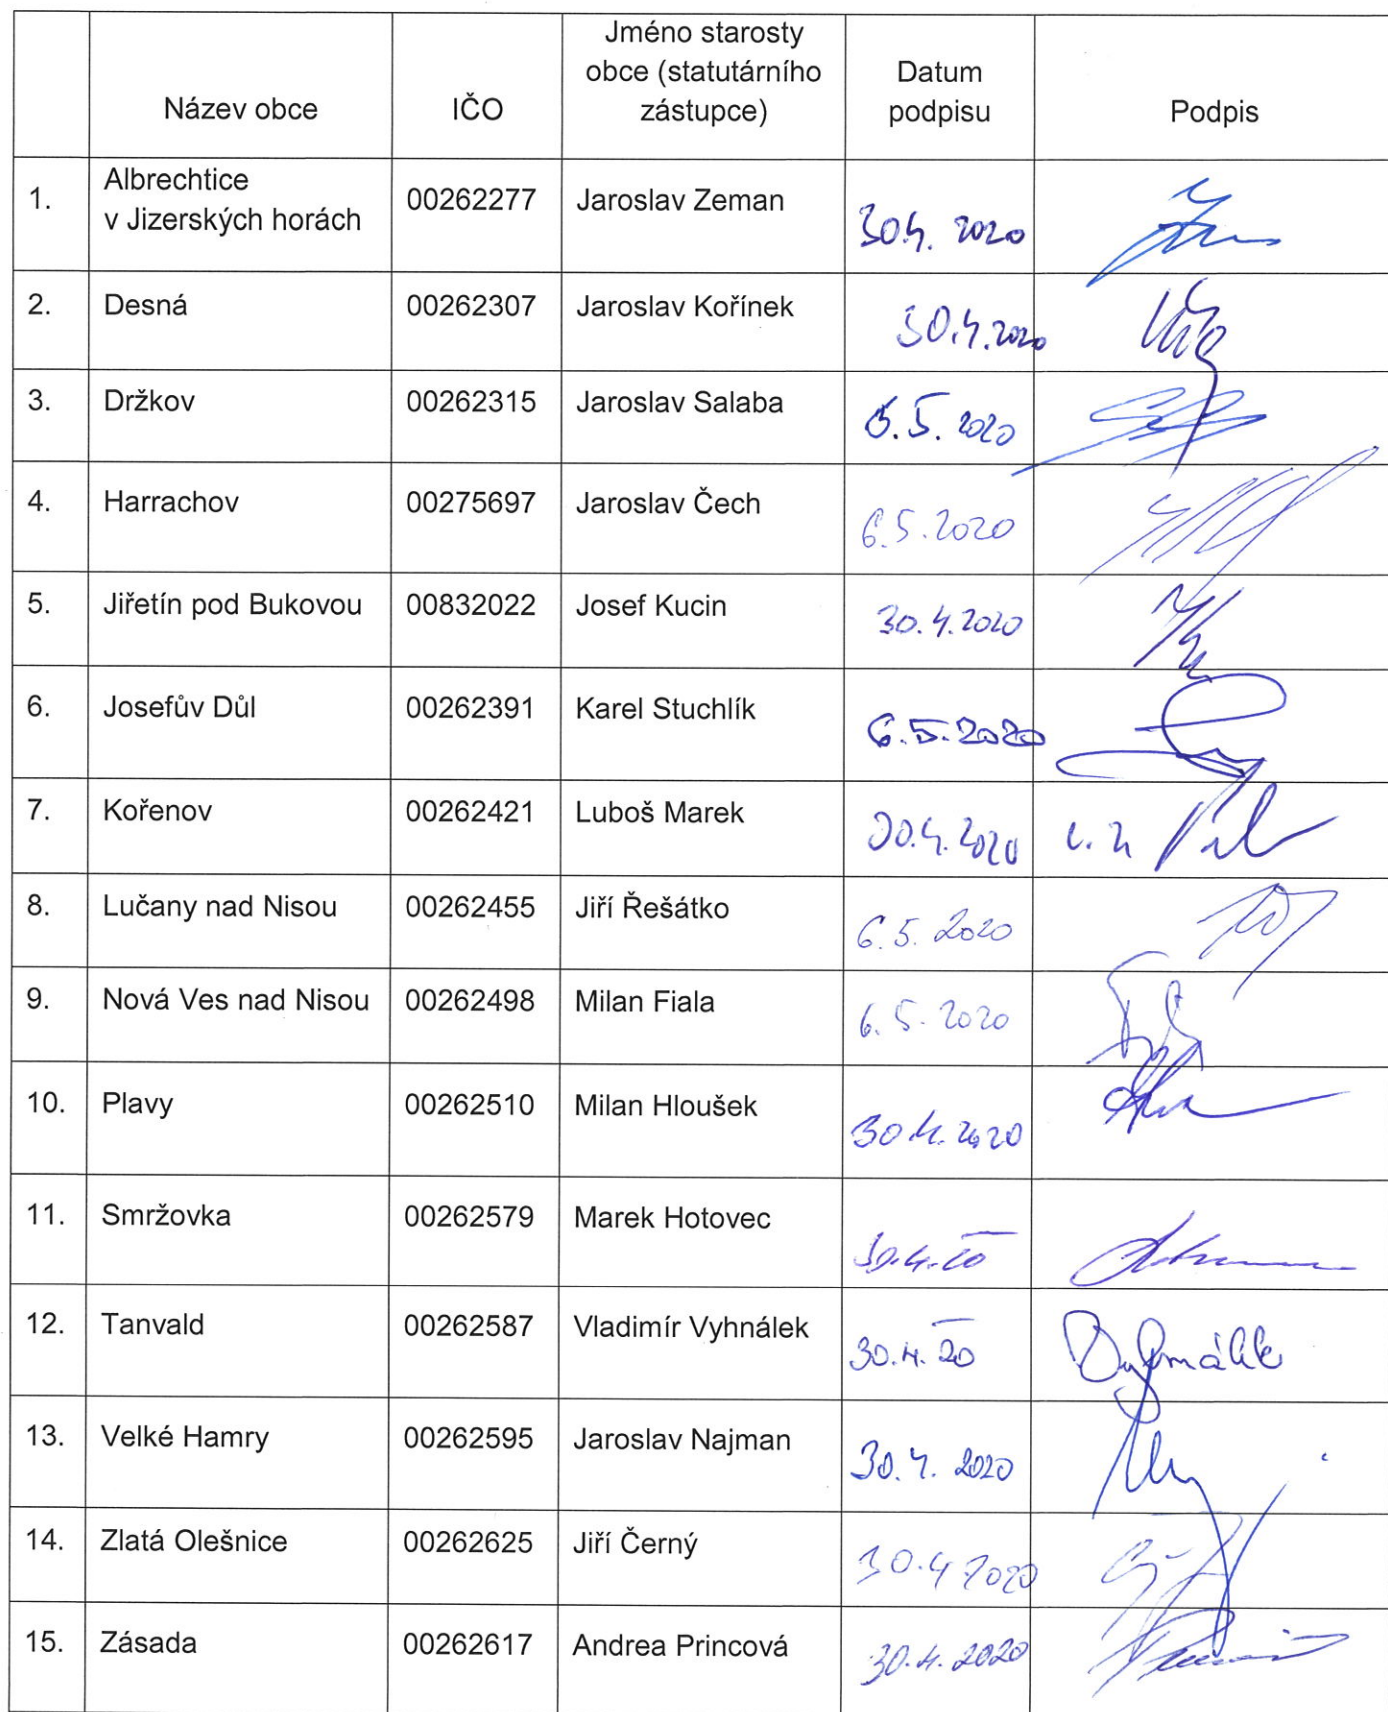 Název obce
IČO
Jméno starosty
obce (statutárního
zástupce)
Datum
podpisu
Podpis
1.
Albrechtice
v Jizerských horách
00262277
Jaroslav Zeman
30.4. 2020
2.
Desná
00262307
Jaroslav Kořínek
30.4.2020
3.
Držkov
00262315
Jaroslav Salaba
6.5. 2020
4.
Harrachov
00275697
Jaroslav Čech
6.5.2020
5.
Jiřetín pod Bukovou
00832022
Josef Kucin
30.4.2020
6.
Josefův Důl
00262391
Karel Stuchlík
6.5.2020
7.
Kořenov
00262421
Luboš Marek
30.4.2020
8.
Lučany nad Nisou
00262455
Jiří Řešátko
6.5. 2020
9.
Nová Ves nad Nisou
00262498
Milan Fiala
6.5.2020
10.
Plavy
00262510
Milan Hloušek
30.4.2020
11.
Smržovka
00262579
Marek Hotovec
30.4.20
12.
Tanvald
00262587
Vladimír Vyhnálek
30.4.20
13.
Velké Hamry
00262595
Jaroslav Najman
30.4. 2020
14.
Zlatá Olešnice
00262625
Jiří Černý
30.4 2020
15.
Zásada
00262617
Andrea Princová
30.4.2020